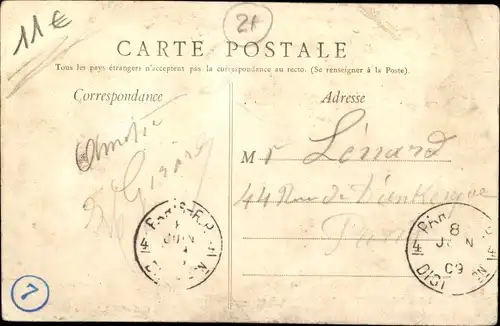 11€
21
CARTE POSTALE
Tous les pays étrangers n'acceptent pas la correspondance au recto. (Se renseigner à la Poste).
Correspondance
Adresse
Amitié
Girard
Mr Lénard
44 Rue de Dunkerque
Paris
4
JUIN
PARIS
8
JUIN
09
4
DIST
7